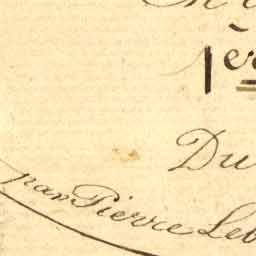 1er
Du
par Pierre Leb